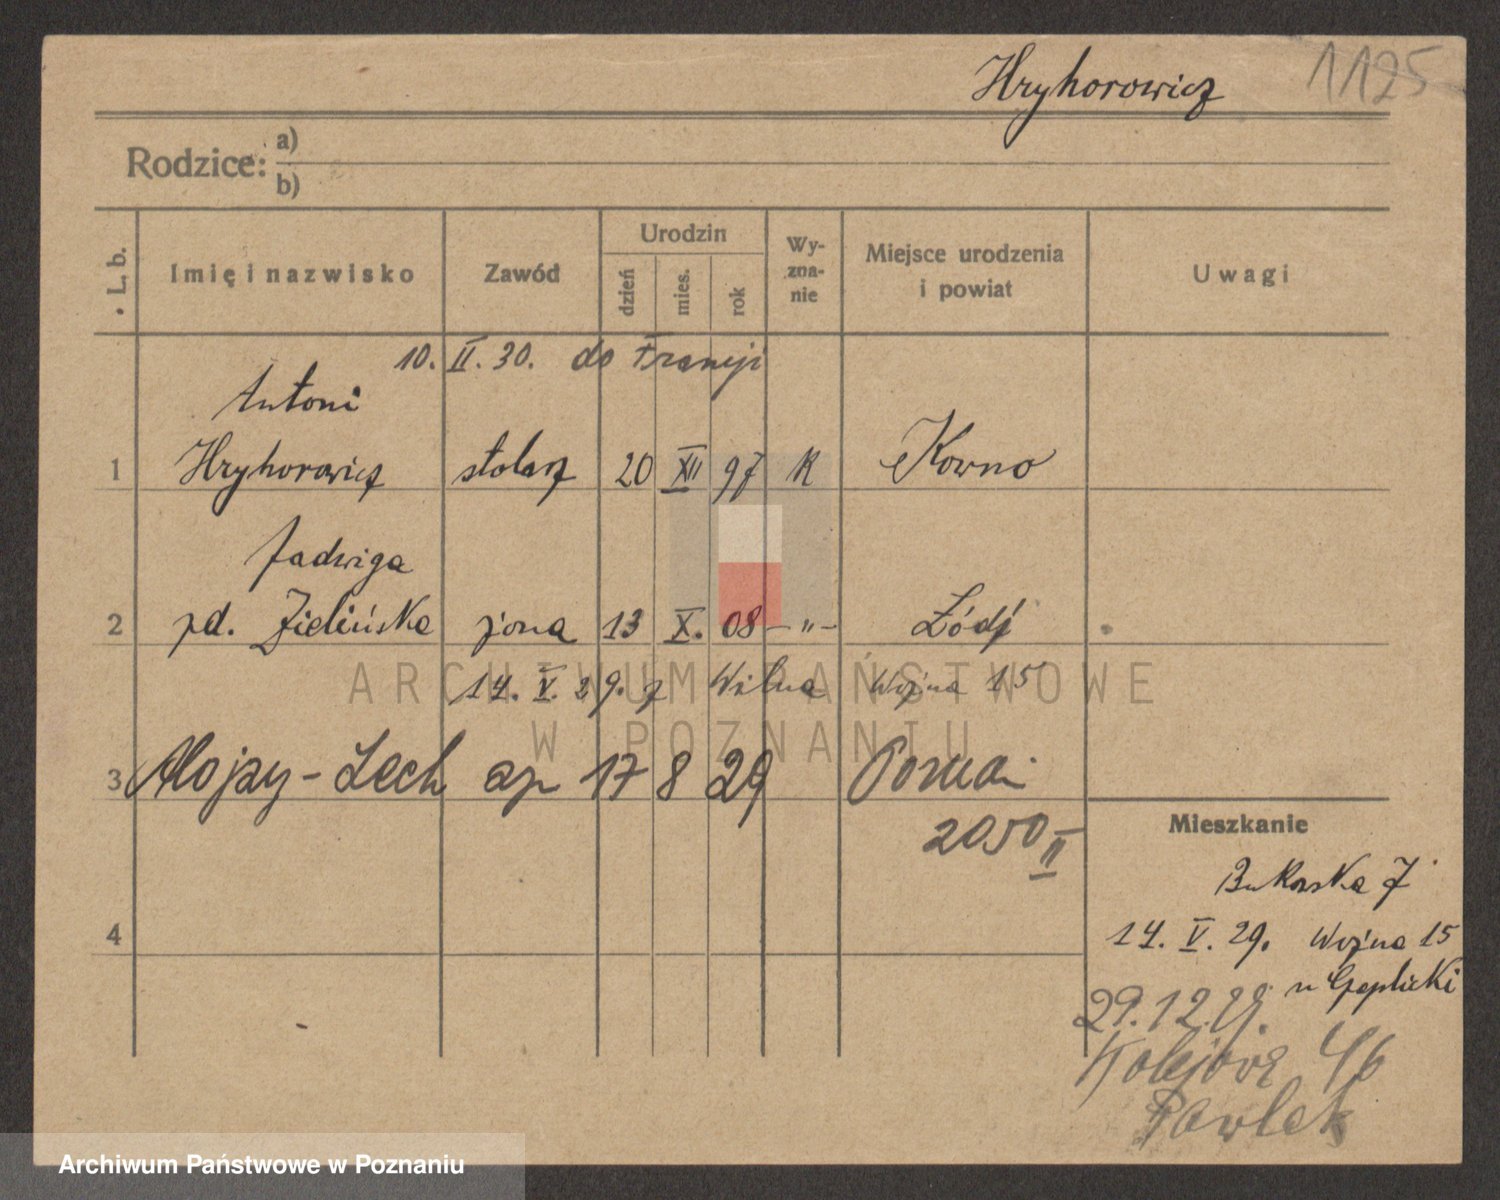 Hryhorowicz 1125
Rodzice: a)
b)
L. b. Imię i nazwisko Zawód Urodzin dzień mies. rok Wy-zna-nie Miejsce urodzenia i powiat Uwagi
10. II. 30. do Francji
Antoni
1 Hryhorowicz stolarz 20 XII 97 K Kowno
Jadwiga
2 zd. Zielińska żona 13 X. 08 -"- Łódź
14. V. 29. z Wilna Woźna 15
3 Alojzy-Lech 17 8 29 Poznań
2050 II
4
Mieszkanie
Bukowska 7
14. V. 29. Woźna 15
29.12.29.
Kolejowa 46
Pawlak
ARCHIWUM PAŃSTWOWE
W POZNANIU
Archiwum Państwowe w Poznaniu